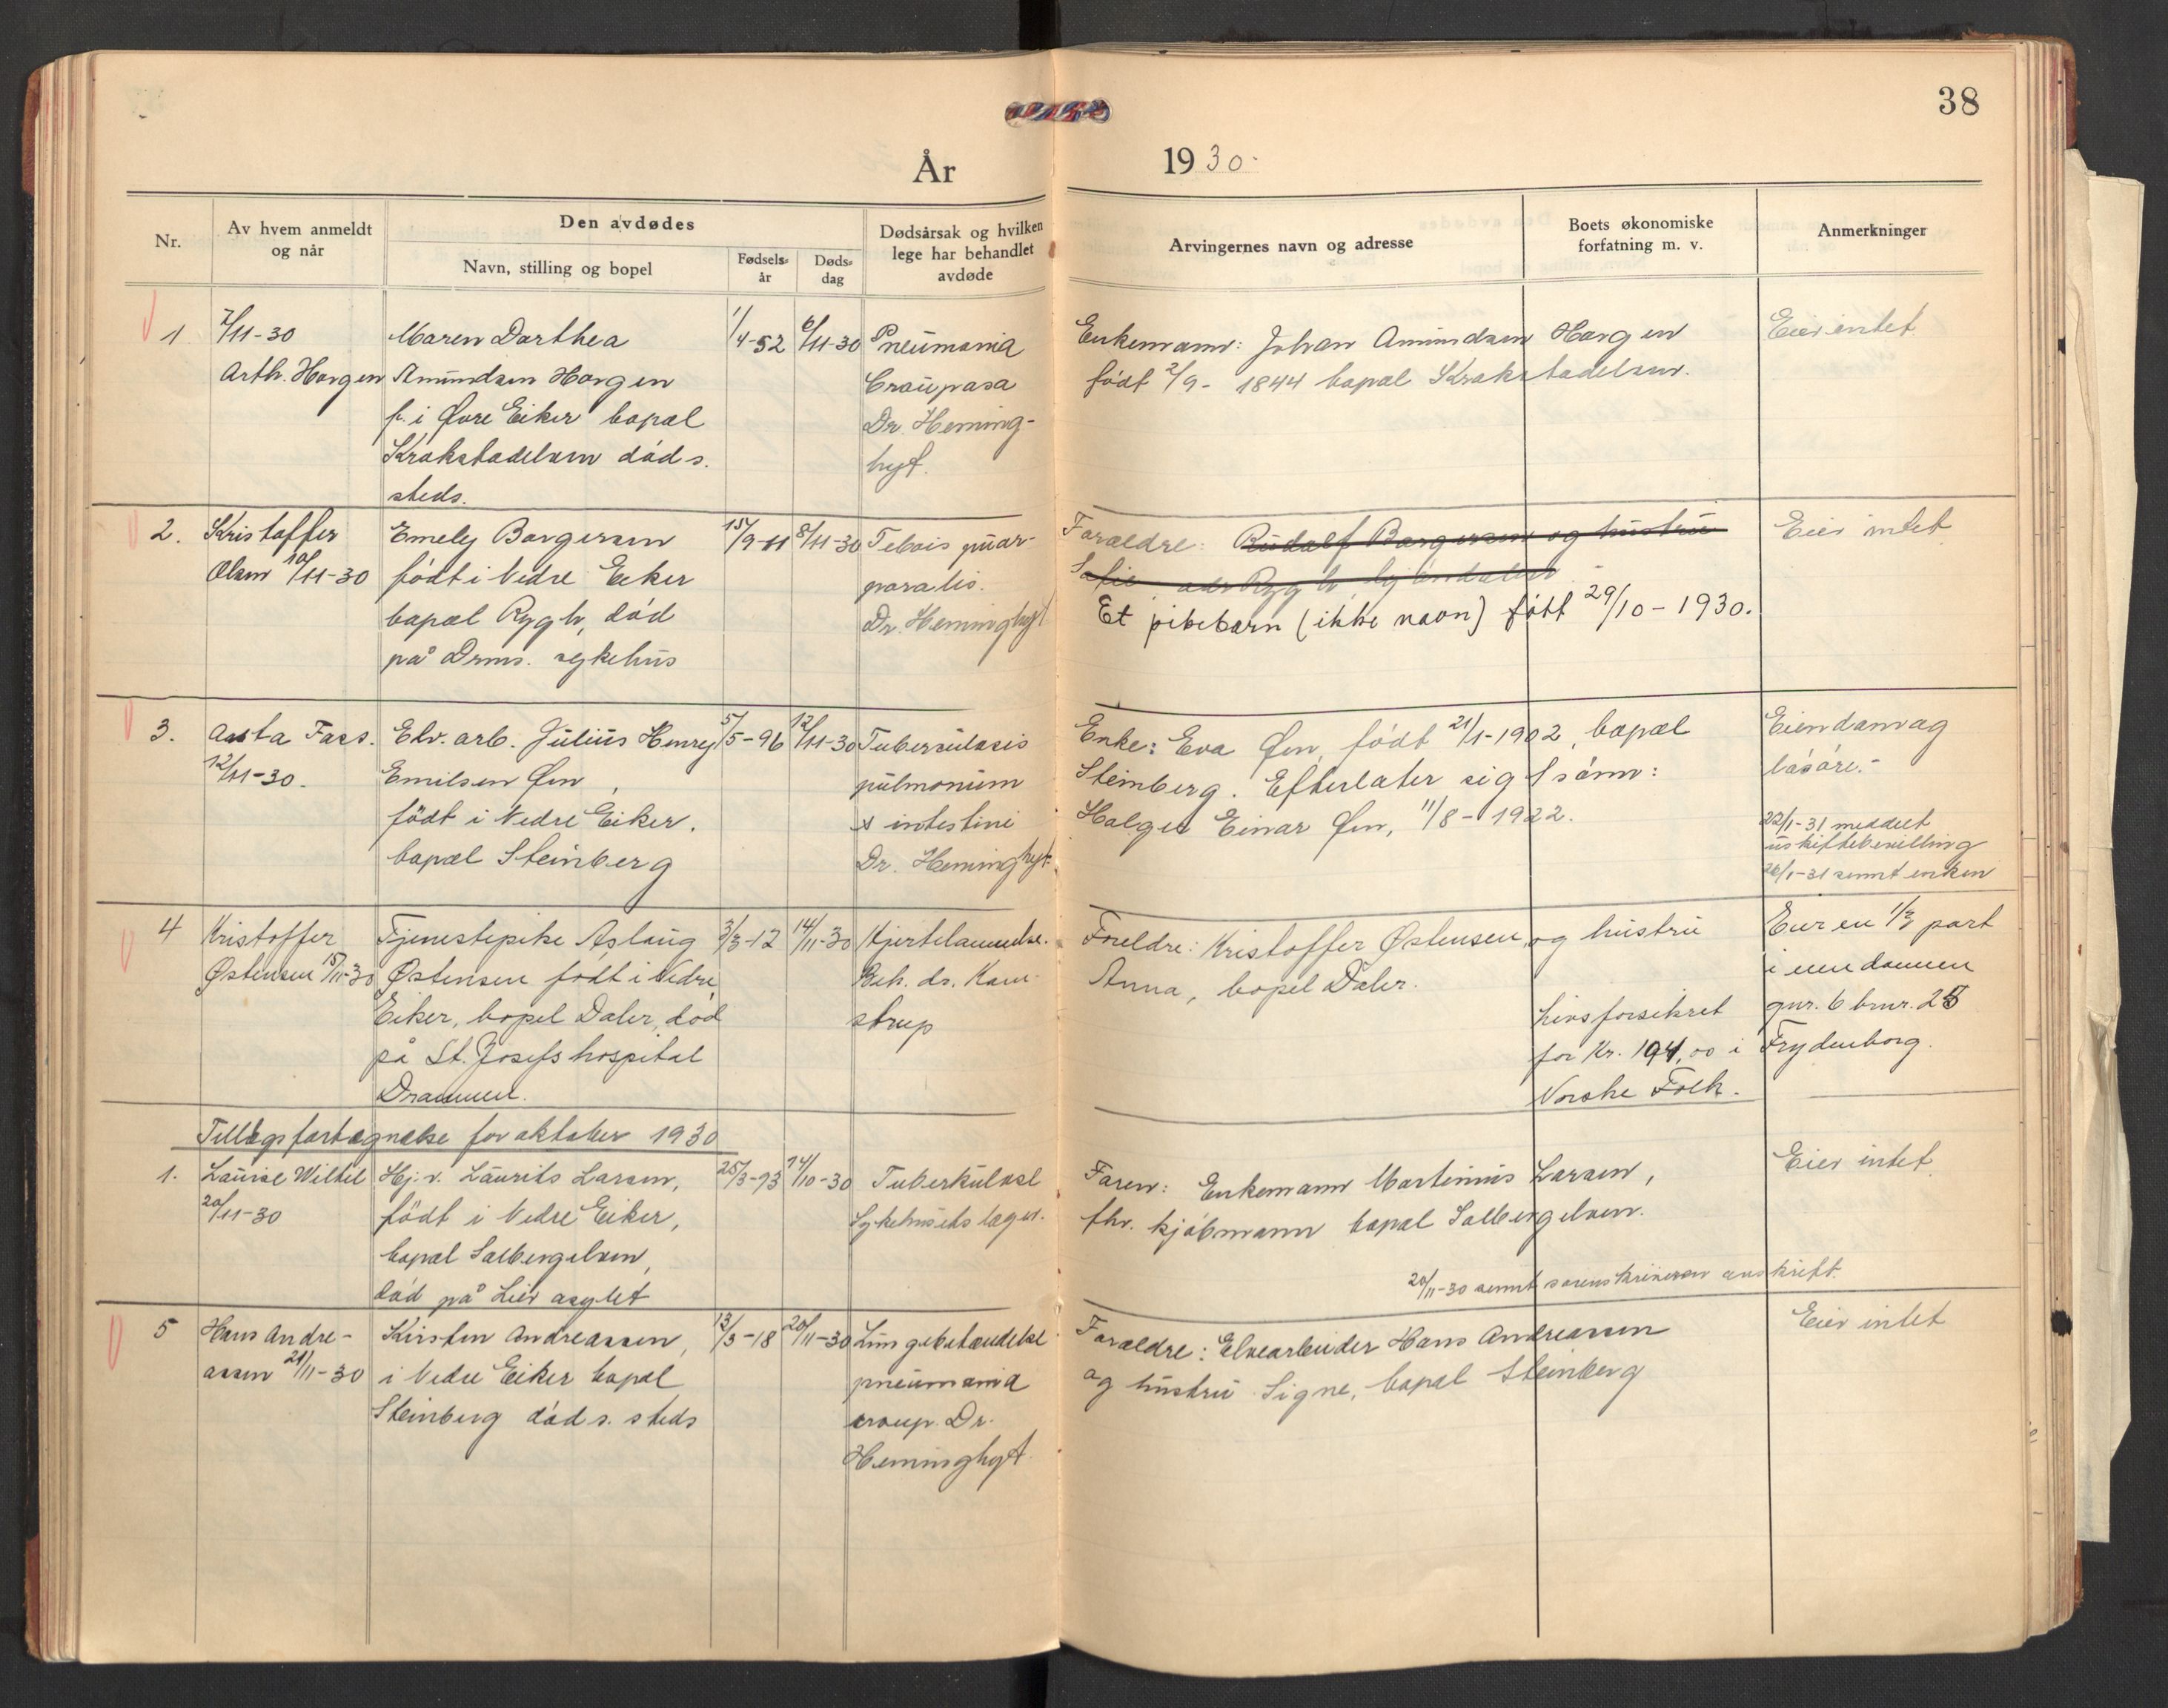 38
År 1930.
Nr.
Av hvem anmeldt
og når
Den avdødes
Navn, stilling og bopel
Fødsels-
år
Døds-
dag
Dødsårsak og hvilken
lege har behandlet
avdøde
Arvingernes navn og adresse
Boets økonomiske
forfatning m. v.
Anmerkninger
1
7/11-30
Arth. Horgen
Maren Dorthea
Amundsen Horgen
f. i Øvre Eiker bopæl
Krokstadelven død s.
steds.
1/4-52
6/11-30
Pneumonia
Crouposa
Dr. Heming-
hyt.
Enkemann: Johan Amundsen Horgen
født 2/9-1844 bopæl Krokstadelven.
Eier intet
2.
Kristoffer
Olsen 10/11-30
Emely Borgersen
født i Nedre Eiker
bopæl Rygh, død
på Drms. sykehus
15/9-11
8/11-30
Febois puer-
paralis.
Dr. Heminghyt
Forældre: Rudolf Borgersen og hustru
Sofie
Et pikebarn (ikke navn) født 29/10-1930.
Eier intet
3.
Aasta Foss.
12/11-30.
Elv. arb. Julius Henry
Emilsen Øen,
født i Nedre Eiker.
bopæl Steinberg
5/5-96
12/11-30
Tuberculosis
pulmonum
& intestini
Dr. Heminghyt.
Enke: Eva Øen, født 21/1-1902, bopæl
Steinberg. Efterlater sig 1 sønn:
Holger Einar Øen, 11/8-1922.
Eiendom og
løsøre.-
22/1-31 meddelt
uskiftebevilling
/1-31 sennt enken
4
Kristoffer
Østensen 15/11-30
Tjenestepike Aslaug
Østensen født i Nedre
Eiker, bopel Daler, død
på St. Josefs hospital
Drammen.
3/3-12
14/11-30
Hjertelammelse.
Beh. dr. Kam-
strup
Foreldre: Kristoffer Østensen og hustru
Anna, bopel Daler.
Livsforsikret
for Kr. 194,00 i
Norske Folk.
Eier en 1/3 part
i eiendommen
gnr. 6 bnr. 25
Frydenborg.
Tillegsfortegnelse for oktober 1930
1.
Laurise Wiltil
20/11-30
Hj. v. Laurits Larsen,
født i Nedre Eiker,
bopæl Solbergelven,
død på Lier asylet
25/3-93
14/10-30
Tuberkulose
Sykehusets læger.
Faren: Enkemann Martinius Larsen,
fhv. kjøbmann bopæl Solbergelven.
20/11-30 sennt sorenskriveren avskrift.
Eier intet
5
Hans Andre-
assen 21/11-30
Kirsten Andreassen,
i Nedre Eiker bopæl
Steinberg død s. steds
13/3-18
20/11-30
Lungebetændelse
pneumonia
croup. Dr.
Heminghyt.
Forældre: Elvearbeider Hans Andreassen
og hustru Signe, bopæl Steinberg
Eier intet